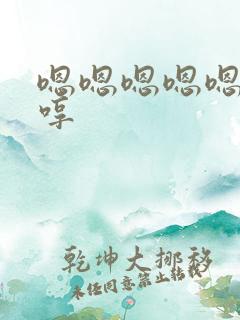 嗯嗯嗯嗯嗯
哼
乾坤大挪移
未经同意禁止转载